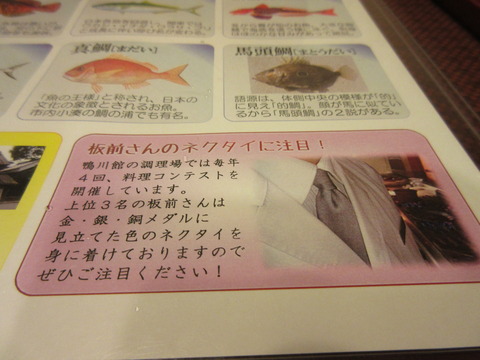 真鯛【まだい】
「魚の王様」と称され、日本の
文化の象徴とされるお魚。
市内小湊の鯛の浦でも有名。
馬頭鯛【まとうだい】
語源は、体側中央の模様が「的」
に見え「的鯛」。顔が馬に似てい
るから「馬頭鯛」の２説がある。
板前さんのネクタイに注目！
鴨川館の調理場では毎年
４回、料理コンテストを
開催しています。
上位３名の板前さんは
金・銀・銅メダルに
見立てた色のネクタイを
身に着けておりますので
ぜひご注目ください！